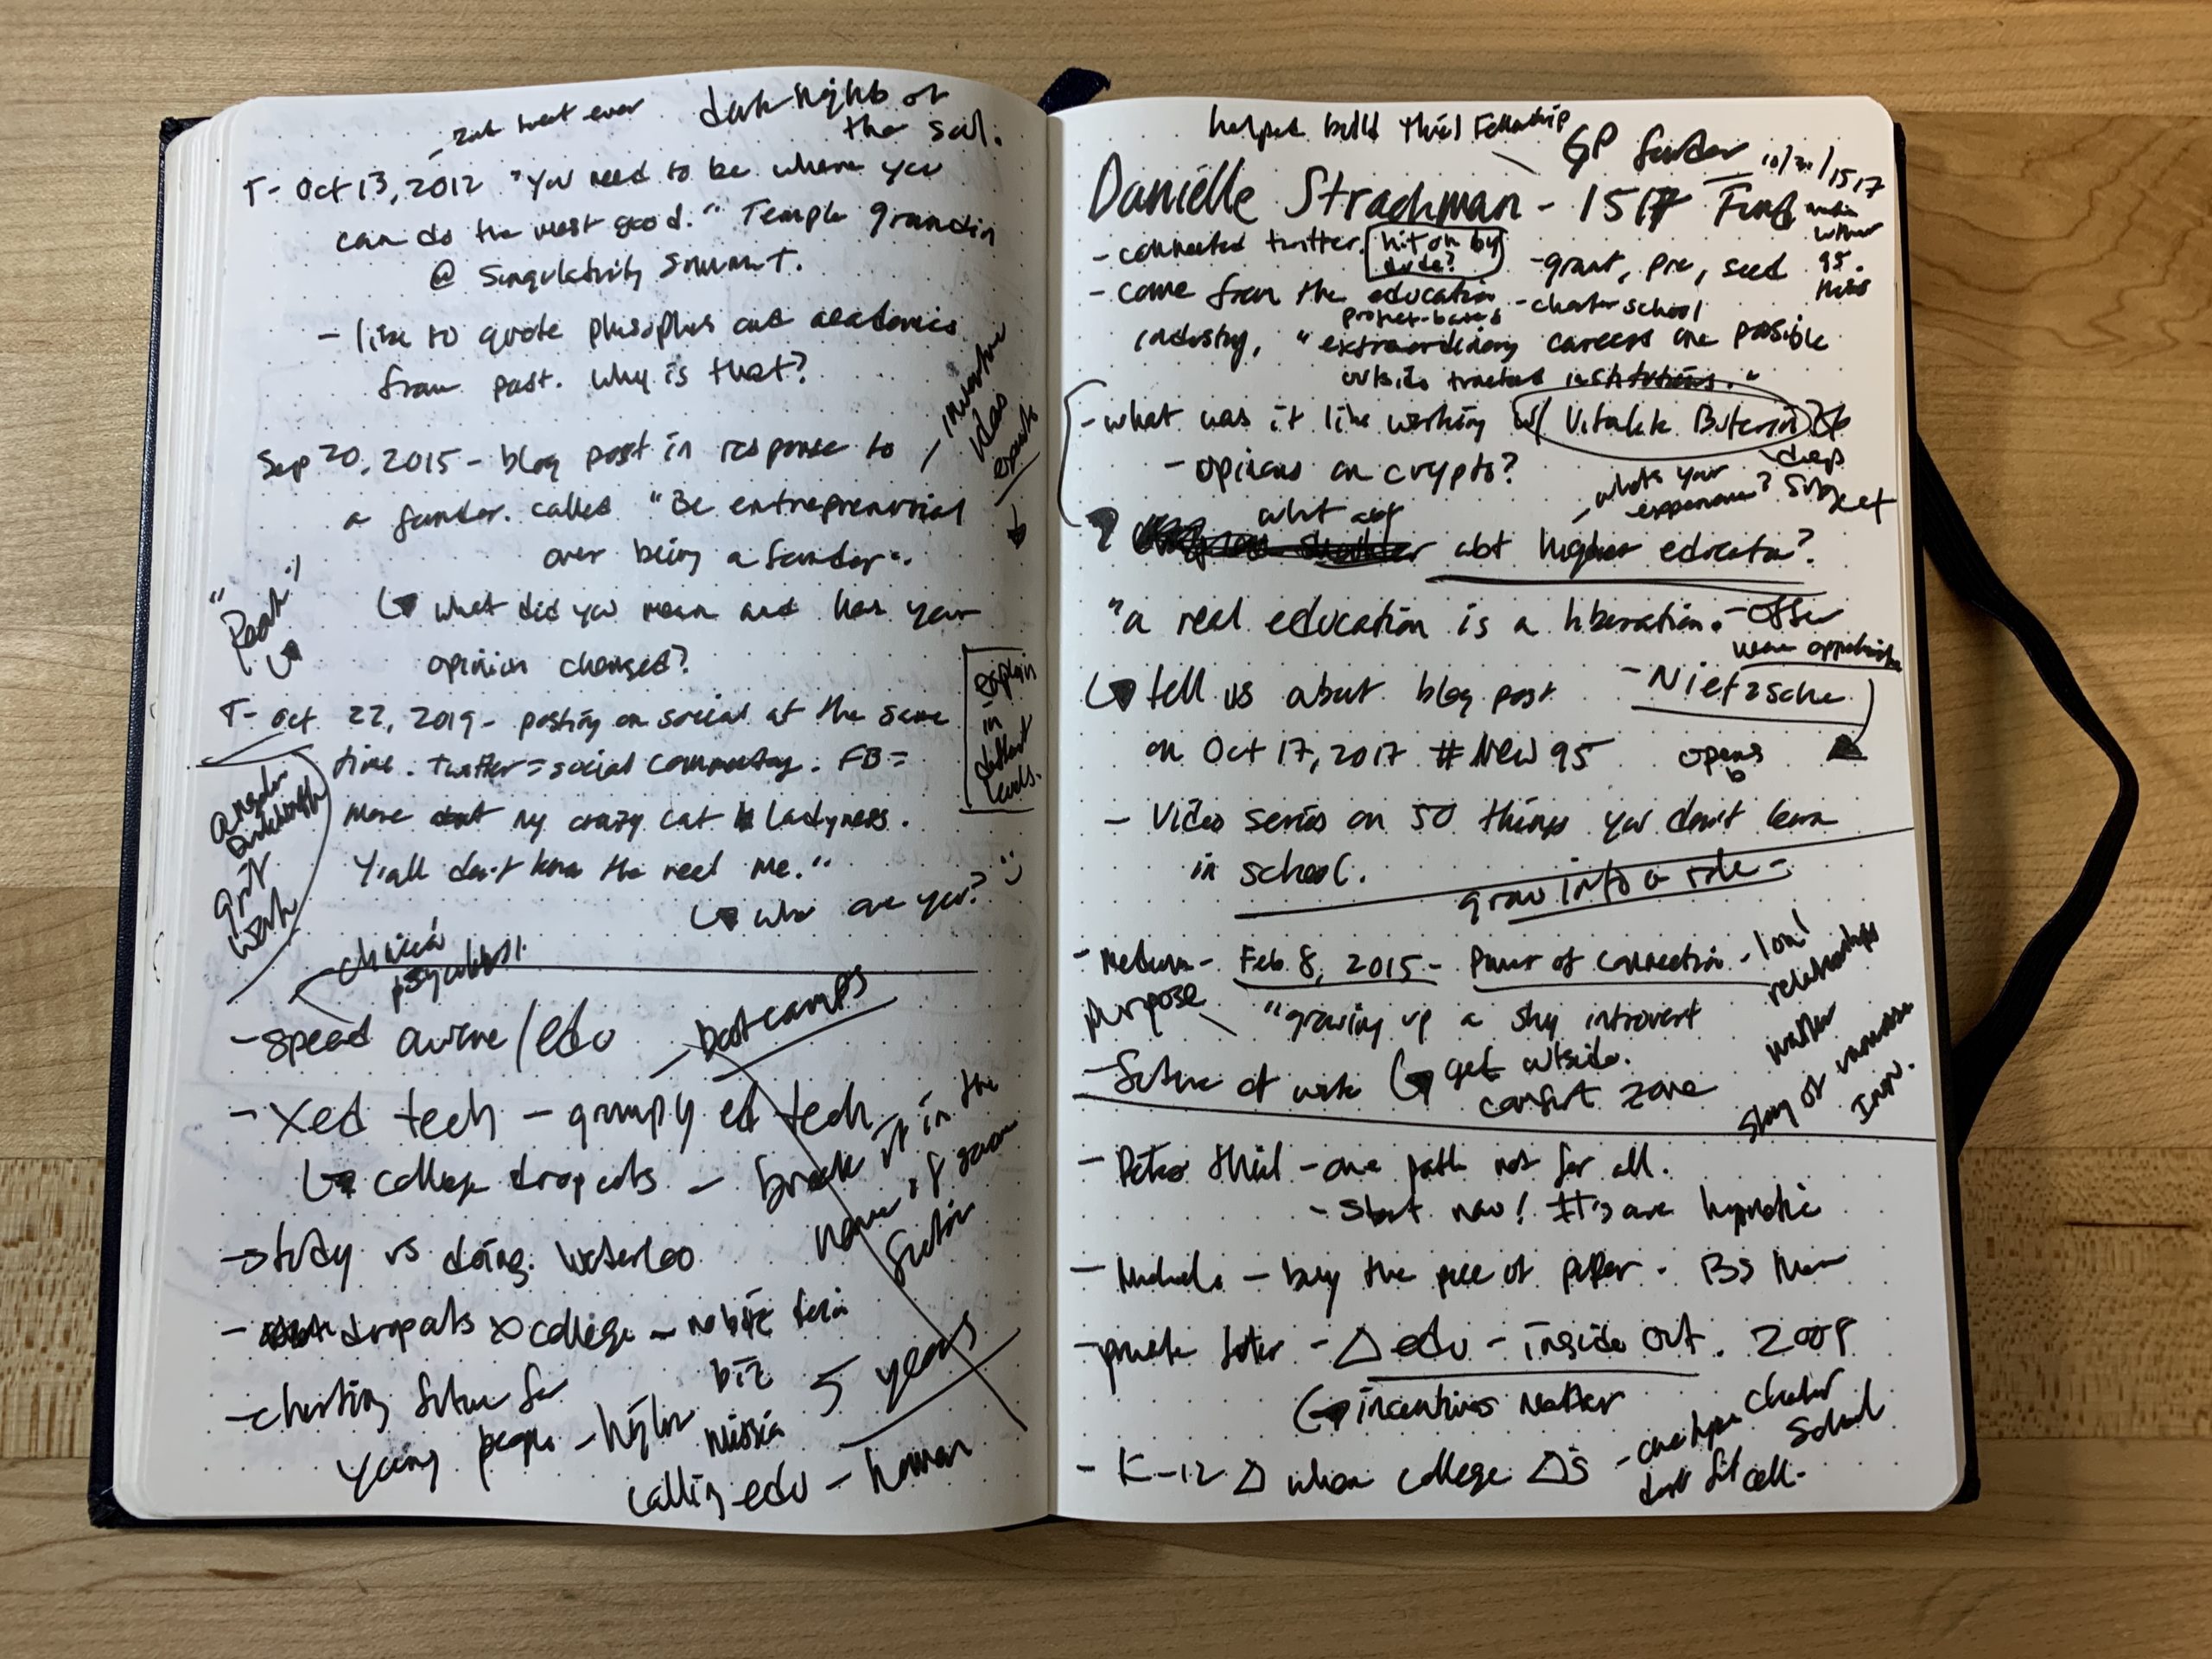 dark nights of
the soul.
T- Oct 13, 2012 "You need to be where you
can do the most good." Temple Grandin
@ Singularity Summit.
- like to quote and academics
from past. Why is that?
Sep 20, 2015 - blog post in response to
a funder. called "Be entrepreneurial
over being a funder".
↳ what did you mean and has your
opinion changed?
"Peak"
T- Oct. 22, 2019 - posting on social at the same
time. Twitter = social commentary. FB =
more about my crazy cat ladyness.
Y'all don't know the real me."
↳ who are you? :)
explain
in
different
levels.
angela
duckworth
grit
work
ideas
- speed /edu
- bootcamps
- Xed tech - grumpy ed tech
↳ college dropouts - break it in the
name of
- study vs doing. Waterloo
- dropouts college -
- charting future for
young people -
biz
mission
5 years
calling edu - human
helped build Thiel Fellowship
GP
Danielle Strachman - 1517 Fund
10/31/1517
95
- connected twitter. hit on by
dude?
- grant, pre, seed
- come from the education
project-based - charter school
industry, "extraordinary careers are possible
outside tracked institutions."
- what was it like working w/ Vitalik Buterin
- opinions on crypto?
deep
subject
what abt
- what's your
experience?
abt higher education?
"a real education is a liberation.
- Nietzsche
↳ tell us about blog post
on Oct 17, 2017 #New95
opens
- Video series on 50 things you don't learn
in school.
grow into a role -
- Medium - Feb. 8, 2015 - Power of connection -
relationships
matter
purpose
"growing up a shy introvert
↳ get outside.
comfort zone
- future of work
- Peter Thiel - one path not for all.
- start now!
- - buy the piece of paper. BS
- Δ edu - inside out. 2009
↳ incentives matter
- K-12 Δ when college Δs
charter
school